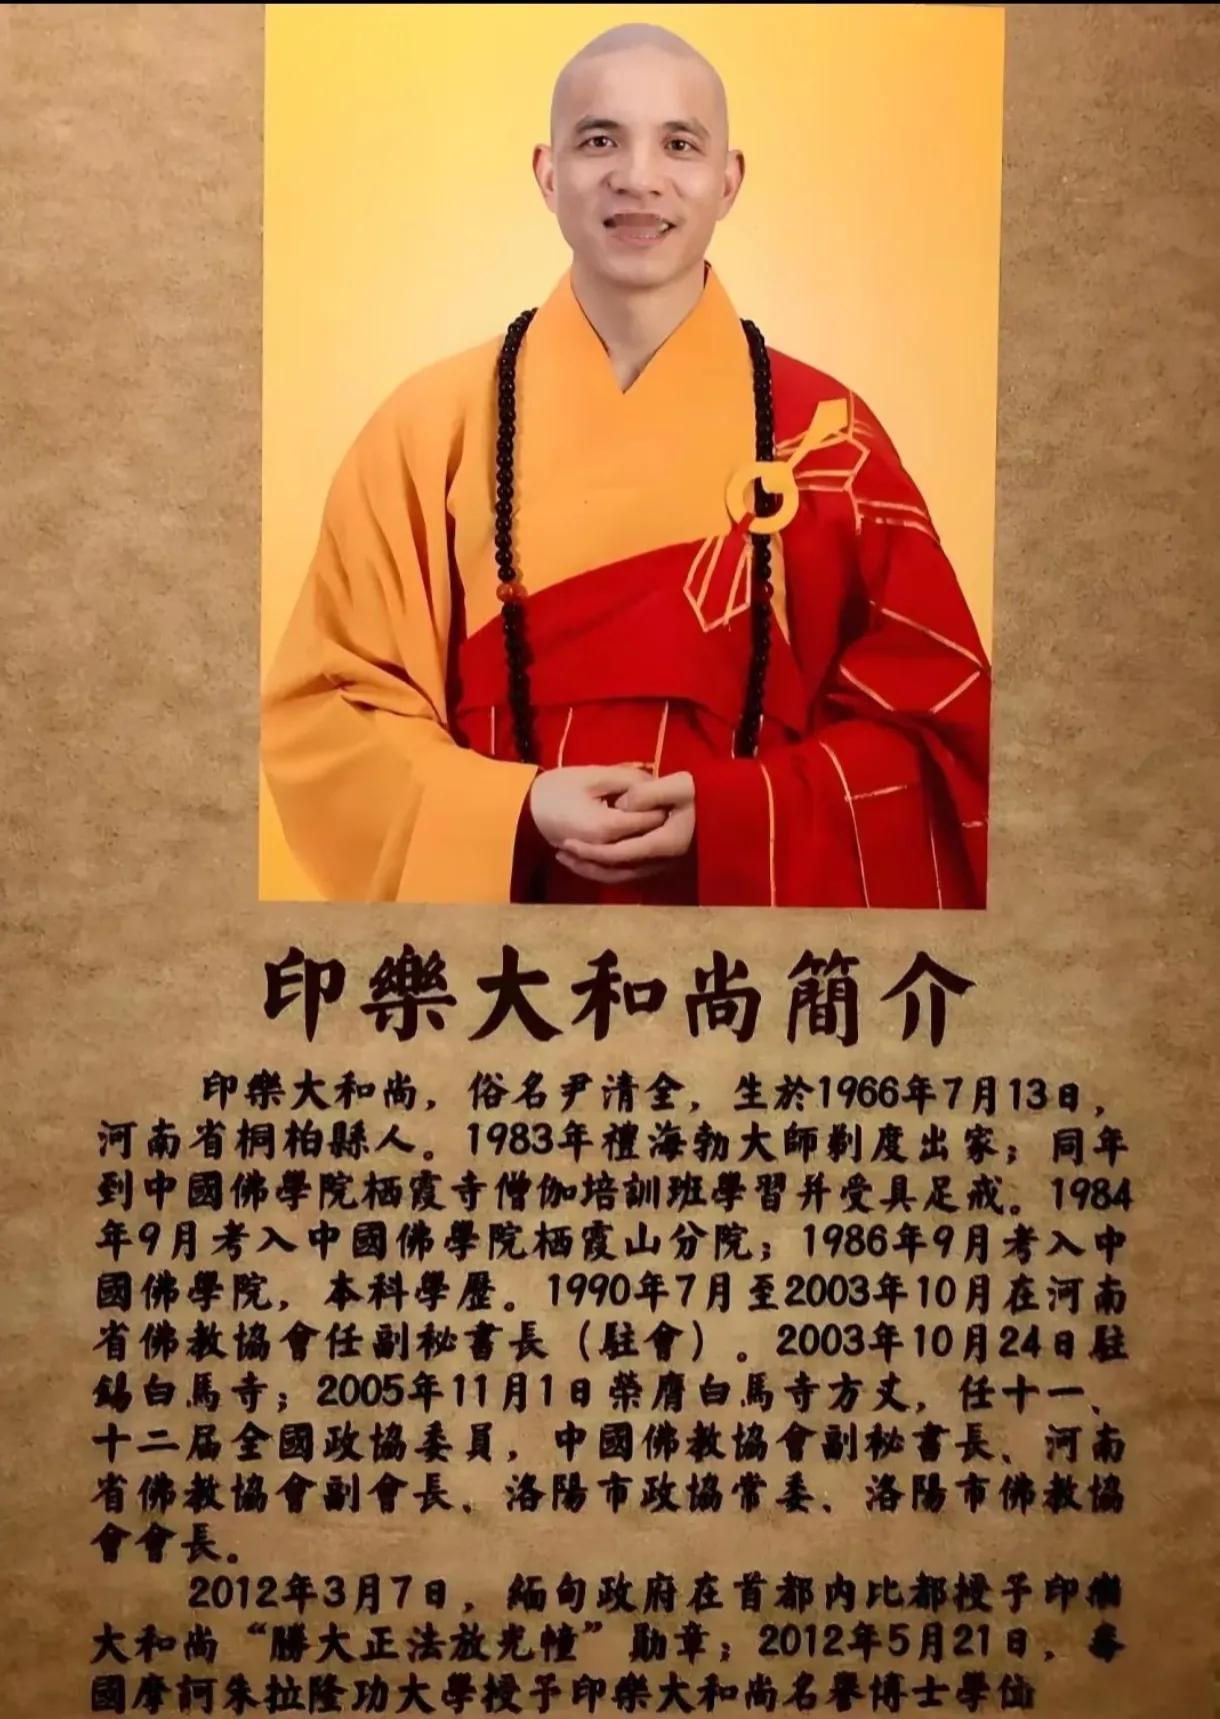 印樂大和尚簡介
印樂大和尚，俗名尹清全，生於1966年7月13日，
河南省桐柏縣人。1983年禮海勃大師剃度出家；同年
到中國佛學院栖霞寺僧伽培訓班學習并受具足戒。1984
年9月考入中國佛學院栖霞山分院；1986年9月考入中
國佛學院，本科學歷。1990年7月至2003年10月在河南
省佛教協會任副秘書長（駐會）。2003年10月24日駐
錫白馬寺；2005年11月1日榮膺白馬寺方丈，任十一、
十二届全國政協委員，中國佛教協會副秘書長、河南
省佛教協會副會長、洛陽市政協常委、洛陽市佛教協
會會長。
2012年3月7日，緬甸政府在首都内比都授予印樂
大和尚“勝大正法放光幢”勛章；2012年5月21日，泰
國摩訶朱拉隆功大學授予印樂大和尚名譽博士學位